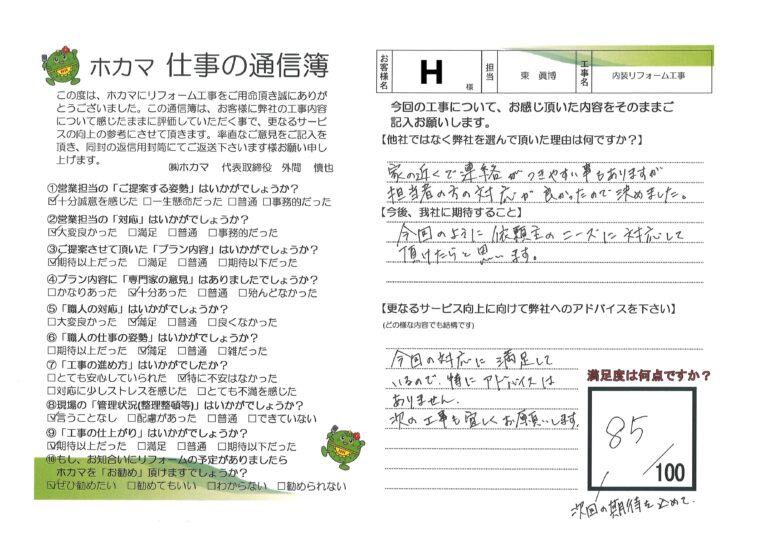 ホカマ 仕事の通信簿
この度は、ホカマにリフォーム工事をご用命頂き誠にありが
とうございました。この通信簿は、お客様に弊社の工事内容
について感じたままに評価していただく事で、更なるサービ
スの向上の参考にさせて頂きます。率直なご意見をご記入を
頂き、同封の返信用封筒にてご返送下さいます様お願い申し
上げます。
㈱ホカマ 代表取締役 外間 慎也
①営業担当の「ご提案する姿勢」はいかがでしょうか?
☑十分誠意を感じた □一生懸命だった □普通 □事務的だった
②営業担当の「対応」はいかがでしょうか?
☑大変良かった □満足 □普通 □事務的だった
③ご提案させて頂いた「プラン内容」はいかがでしょうか?
☑期待以上だった □満足 □普通 □期待以下だった
④プラン内容に「専門家の意見」はありましたでしょうか?
□かなりあった ☑十分あった □普通 □殆んどなかった
⑤「職人の対応」はいかがでしょうか?
□大変良かった ☑満足 □普通 □良くなかった
⑥「職人の仕事の姿勢」はいかがでしょうか?
□期待以上だった ☑満足 □普通 □雑だった
⑦「工事の進め方」はいかがでしたか?
□とても安心していられた ☑特に不安はなかった
□対応に少しストレスを感じた □とても不満を感じた
⑧現場の「管理状況(整理整頓等)」はいかがでしょうか?
☑言うことなし □配慮があった □普通 □できていない
⑨「工事の仕上がり」はいかがでしょうか?
☑期待以上だった □満足 □普通 □期待以下だった
⑩もし、お知合いにリフォームの予定がありましたら
ホカマを「お勧め」頂けますでしょうか?
☑ぜひ勧めたい □勧めてもいい □わからない □勧められない
お客様名 H 様 担当 東 眞博 工事名 内装リフォーム工事
今回の工事について、お感じ頂いた内容をそのままご
記入お願いします。
【他社ではなく弊社を選んで頂いた理由は何ですか?】
家の近くで連絡がつきやすい事もありますが
担当者の方の対応が良かったので決めました。
【今後、我社に期待すること】
今回のように依頼主のニーズに対応して
頂けたらと思います。
【更なるサービス向上に向けて弊社へのアドバイスを下さい】
(どの様な内容でも結構です)
今回の対応に満足して
いるので、特にアドバイスは
ありません。
次の工事も宜しくお願いします。
満足度は何点ですか?
85/100
次回の期待を込めて。